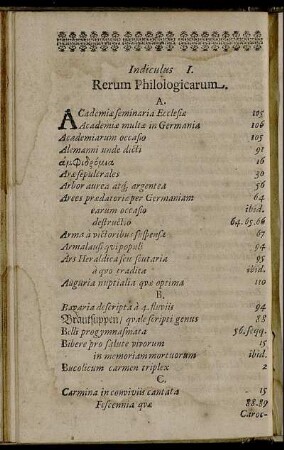 Indiculus I.
Rerum Philologicarum.
A.
ACademiæ seminaria Ecclesiæ 105
Academiæ multæ in Germania 106
Academiarum occasio 105
Alemanni unde dicti 91
ἀμφιδρόμια 16
Aræ sepulcrales 30
Arbor aurea atq; argentea 56
Arces prædatoriæ per Germaniam 64
earum occasio ibid.
destructio 64. 65. 66
Arma à victoribus suspensa 67
Armalausi qui populi 94
Ars Heraldica seu scutaria 95
à quo tradita ibid.
Auguria nuptialia quæ optima 110
B.
Bavaria descripta à 4. fluviis 94
Brautsuppen/ quale scripti genus 88
Belli progymnasmata 56. seqq.
Bibere pro salute vivorum 15
in memoriam mortuorum ibid.
Bucolicum carmen triplex 2
C.
Carmina in conviviis cantata 15
Fescennia quæ 88. 89
Caroc-